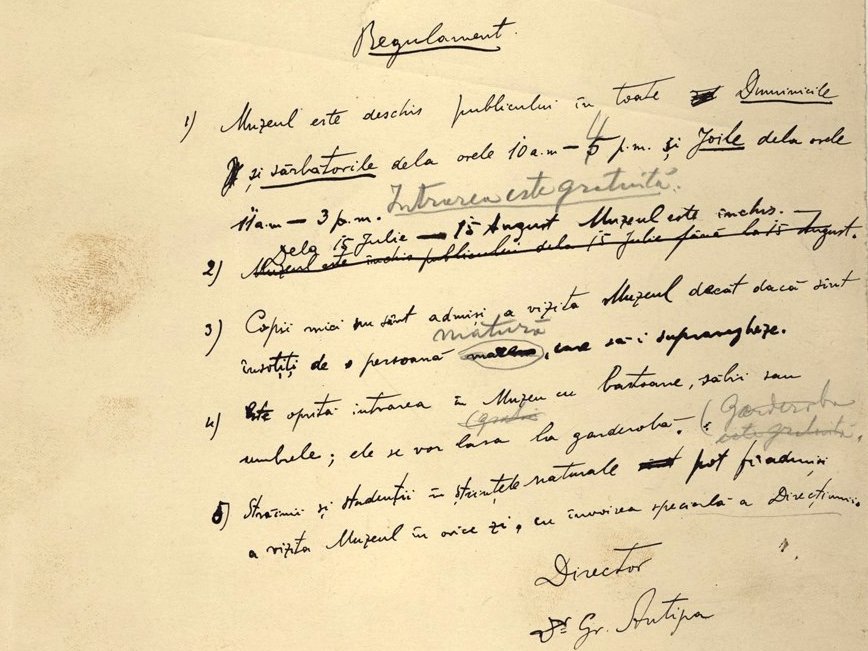 Regulament.
1) Muzeul este deschis publicului în toate Duminicile
și sărbătorile dela orele 10 a.m — 4 p.m. și Joile dela orele
11 a.m — 3 p.m. Intrarea este gratuită.
Dela 15 Julie — 15 August Muzeul este închis.
2) Muzeul este închis publicului dela 15 Julie până la 15 August.
3) Copii mici nu sânt admisi a vizita Muzeul decât dacă sînt
matură
însoțiți de o persoană, care să-i supravegheze.
4) Este oprită intrarea în Muzeu cu bastoane, săbii sau
(gratis
umbrele; ele se vor lăsa la garderobă. (Garderoba
este gratuită.
5) Străinii și studenții în științele naturale pot fi admiși
a vizita Muzeul în orice zi, cu învoirea specială a Direcțiunii.
Director
Dr Gr. Antipa